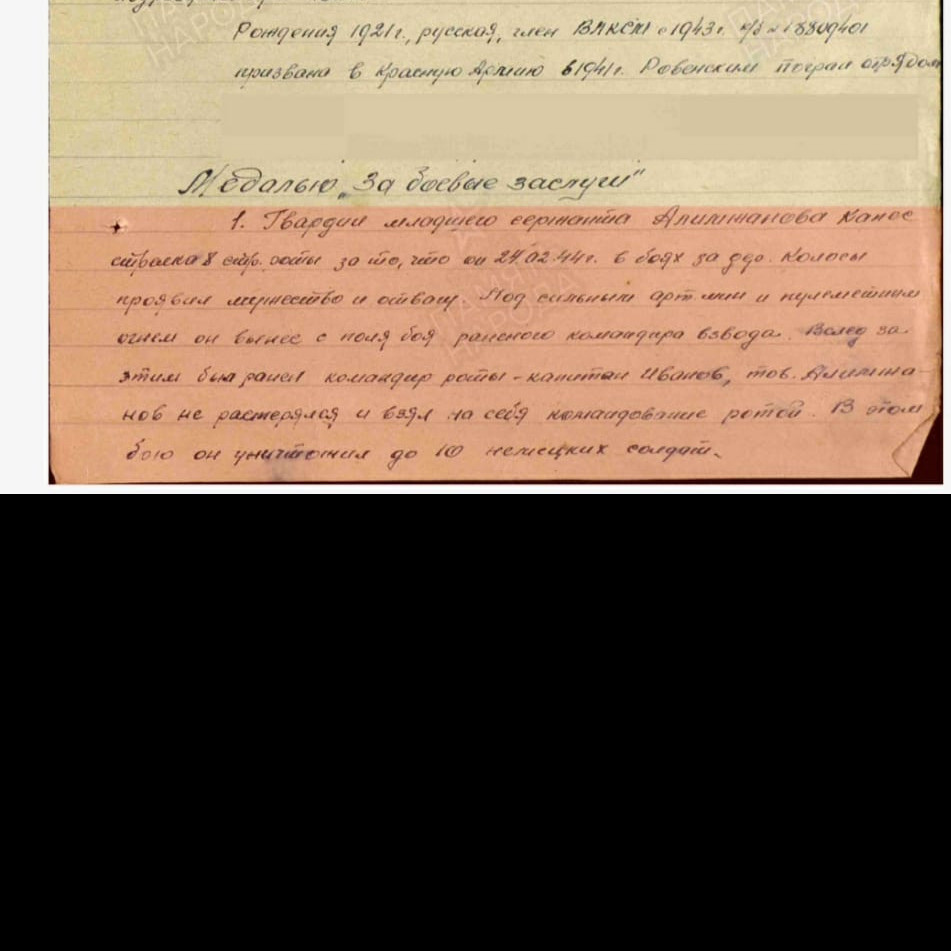 Рождения 1921г., русская, член ВЛКСМ с 1943г. к/б №18809401
призвана в Красную Армию в 1941г. Ровенским погран отрядом
Медалью "За боевые заслуги"
1. Гвардии младшего сержанта Алимжанова Капес
стрелка 8 стр. роты за то, что он 24.02.44г. в боях за дер. Колосы
проявил мужество и отвагу. Под сильным арт. мин и пулеметным
огнем он вынес с поля боя раненого командира взвода. Вслед за
этим был ранен командир роты - капитан Иванов, тов. Алимжа-
нов не растерялся и взял на себя командование ротой. В этом
бою он уничтожил до 10 немецких солдат.
ПАМЯТЬ
НАРОДА